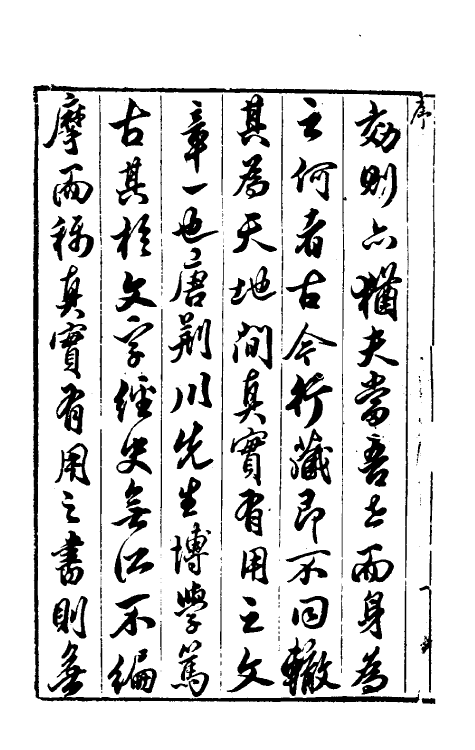 序
效則亦猶夫當吾世而身為
之何者古今行藏即不同轍
其為天地間真實有用之文
章一也唐荊川先生博學篤
古其於文字經史無所不編
摩而稱真實有用之書則無